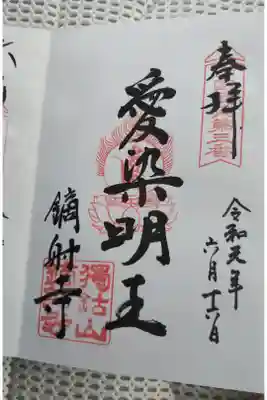 奉拝
令和元年
六月十六日
愛染明王
鏑射寺
獨古山